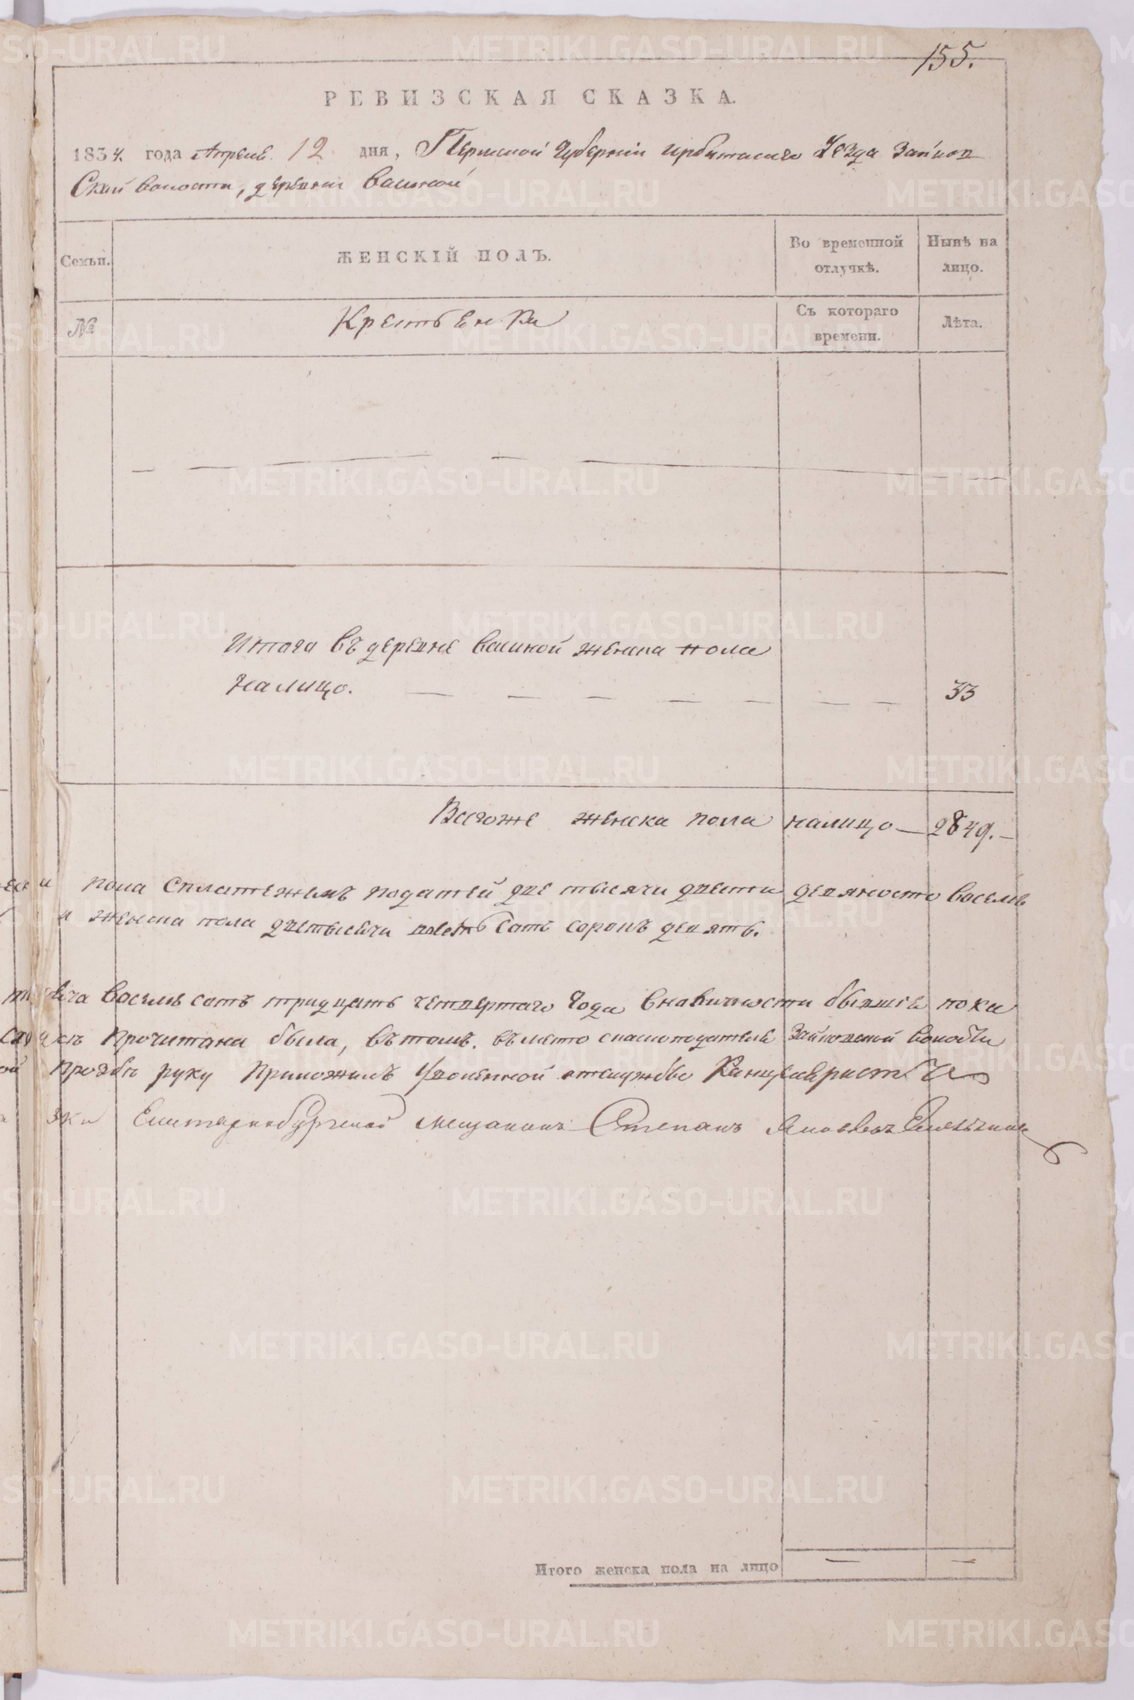 155.
РЕВИЗСКАЯ СКАЗКА.
1834 года Апреля 12 дня, Пермской Губернии ирбитскаго Уезда Зайков
Ской волости, деревни
Семьи. ЖЕНСКІЙ ПОЛЪ. Во временной отлучкѣ. Нынѣ на лицо.
№ Крестьенки Съ котораго времени. Лѣта.
Итого въ деревне женска пола
На лицо. 33
Всегоже женска пола налицо 2849.
пола Сплатежемъ податей две тысячи двести девяносто восемь
и женска пола дветысячи восемь Сотъ сорокъ девять.
восемь сотъ тридцать четвертаго Года Вналичности бывшее пока
Прочитана была, Вътомъ. Вместо Зайковской волости
прозбы руку Приложилъ Уволенной отслужбы Канцеляристъ
Екатеринбургской мещанинъ Степанъ Яковлевъ
Итого женска пола на лицо
METRIKI.GASO-URAL.RU